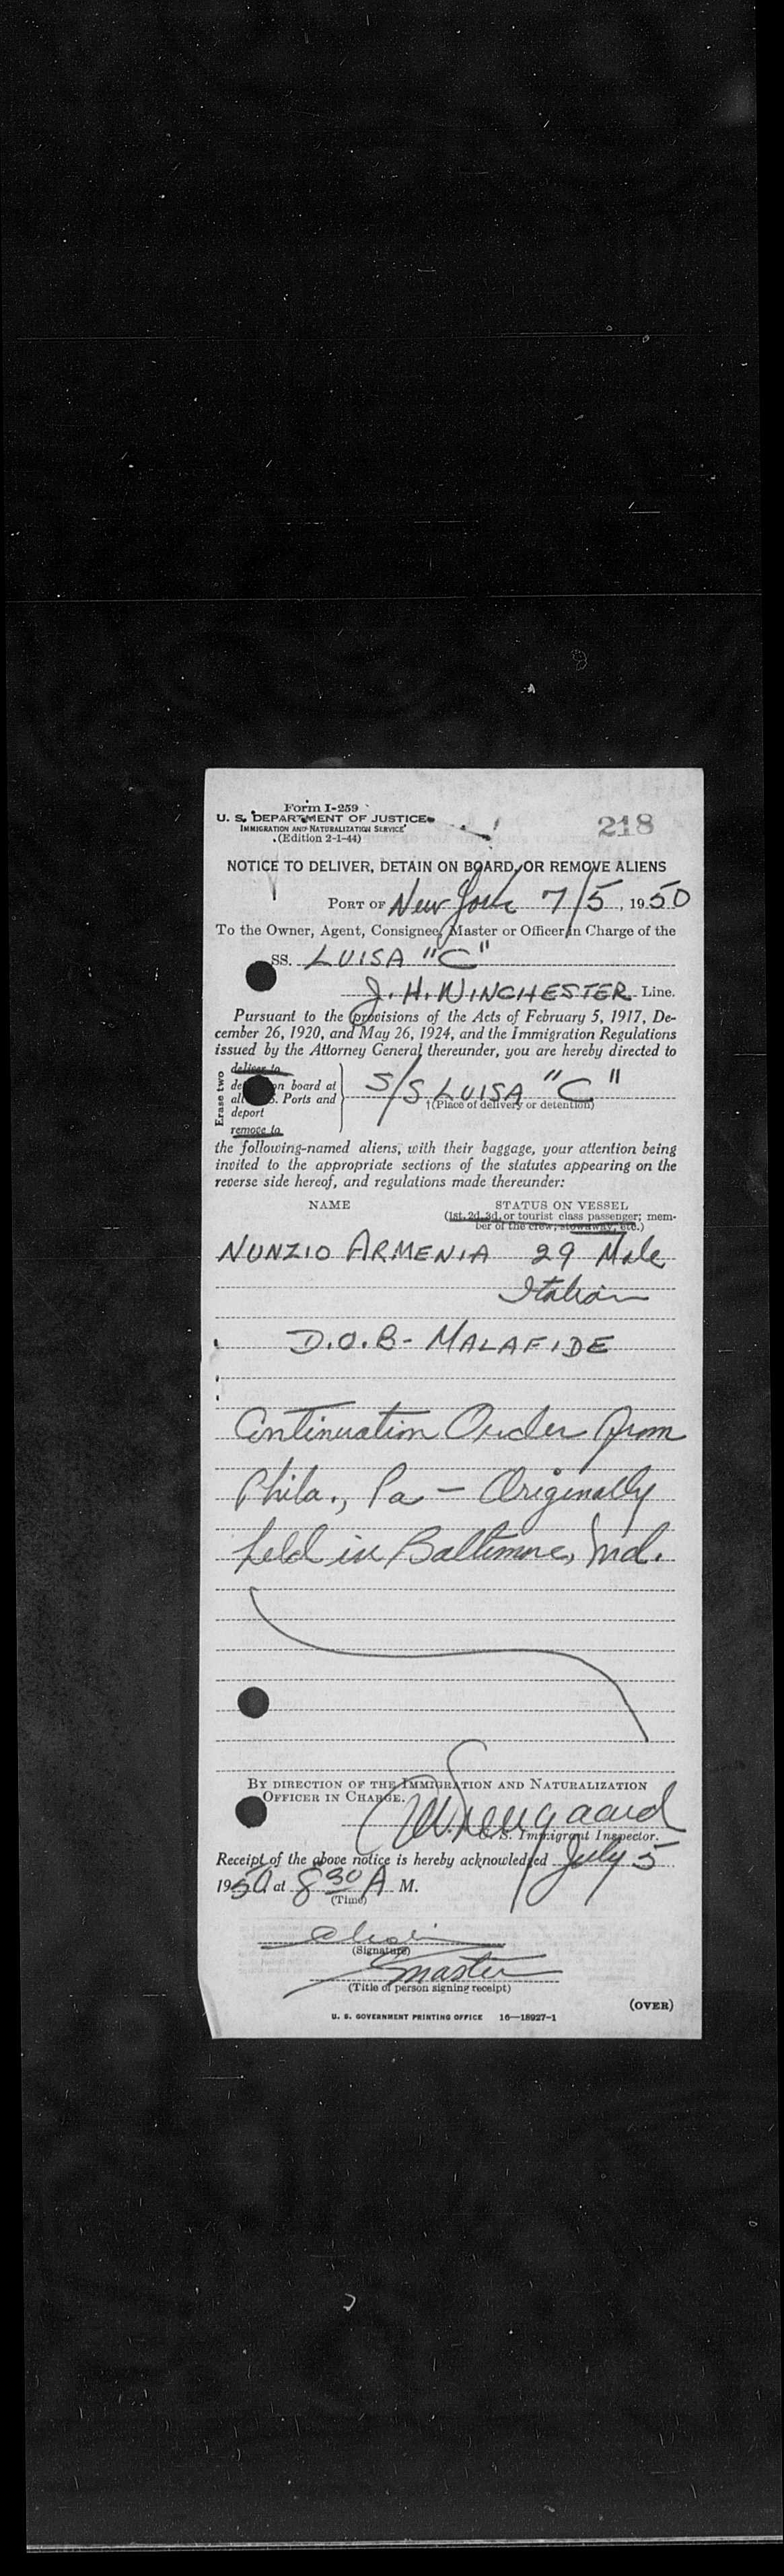 Form I-259
U. S. DEPARTMENT OF JUSTICE
IMMIGRATION AND NATURALIZATION SERVICE
(Edition 2-1-44)
218
NOTICE TO DELIVER, DETAIN ON BOARD, OR REMOVE ALIENS
PORT OF New York 7/5, 1950
To the Owner, Agent, Consignee, Master or Officer in Charge of the
SS. LUISA "C"
J. H. WINCHESTER Line.
Pursuant to the provisions of the Acts of February 5, 1917, De-
cember 26, 1920, and May 26, 1924, and the Immigration Regulations
issued by the Attorney General thereunder, you are hereby directed to
Erase two
deliver to
on board at
Ports and
deport
remove to
S/S LUISA "C"
†(Place of delivery or detention)
the following-named aliens, with their baggage, your attention being
invited to the appropriate sections of the statutes appearing on the
reverse side hereof, and regulations made thereunder:
NAME STATUS ON VESSEL
(1st, 2d, 3d, or tourist class passenger; mem-
ber of the crew; stowaway, etc.)
NUNZIO ARMENIA 29 Male
Italian
D.O.B - MALAFIDE
Continuation Order from
Phila., Pa - Originally
held in Baltimore, Md.
BY DIRECTION OF THE IMMIGRATION AND NATURALIZATION
OFFICER IN CHARGE.
U. S. Immigrant Inspector.
Receipt of the above notice is hereby acknowledged July 5
1950 at 8 30 A M.
(Time)
(Signature)
Master
(Title of person signing receipt)
(OVER)
U. S. GOVERNMENT PRINTING OFFICE 16—18927-1